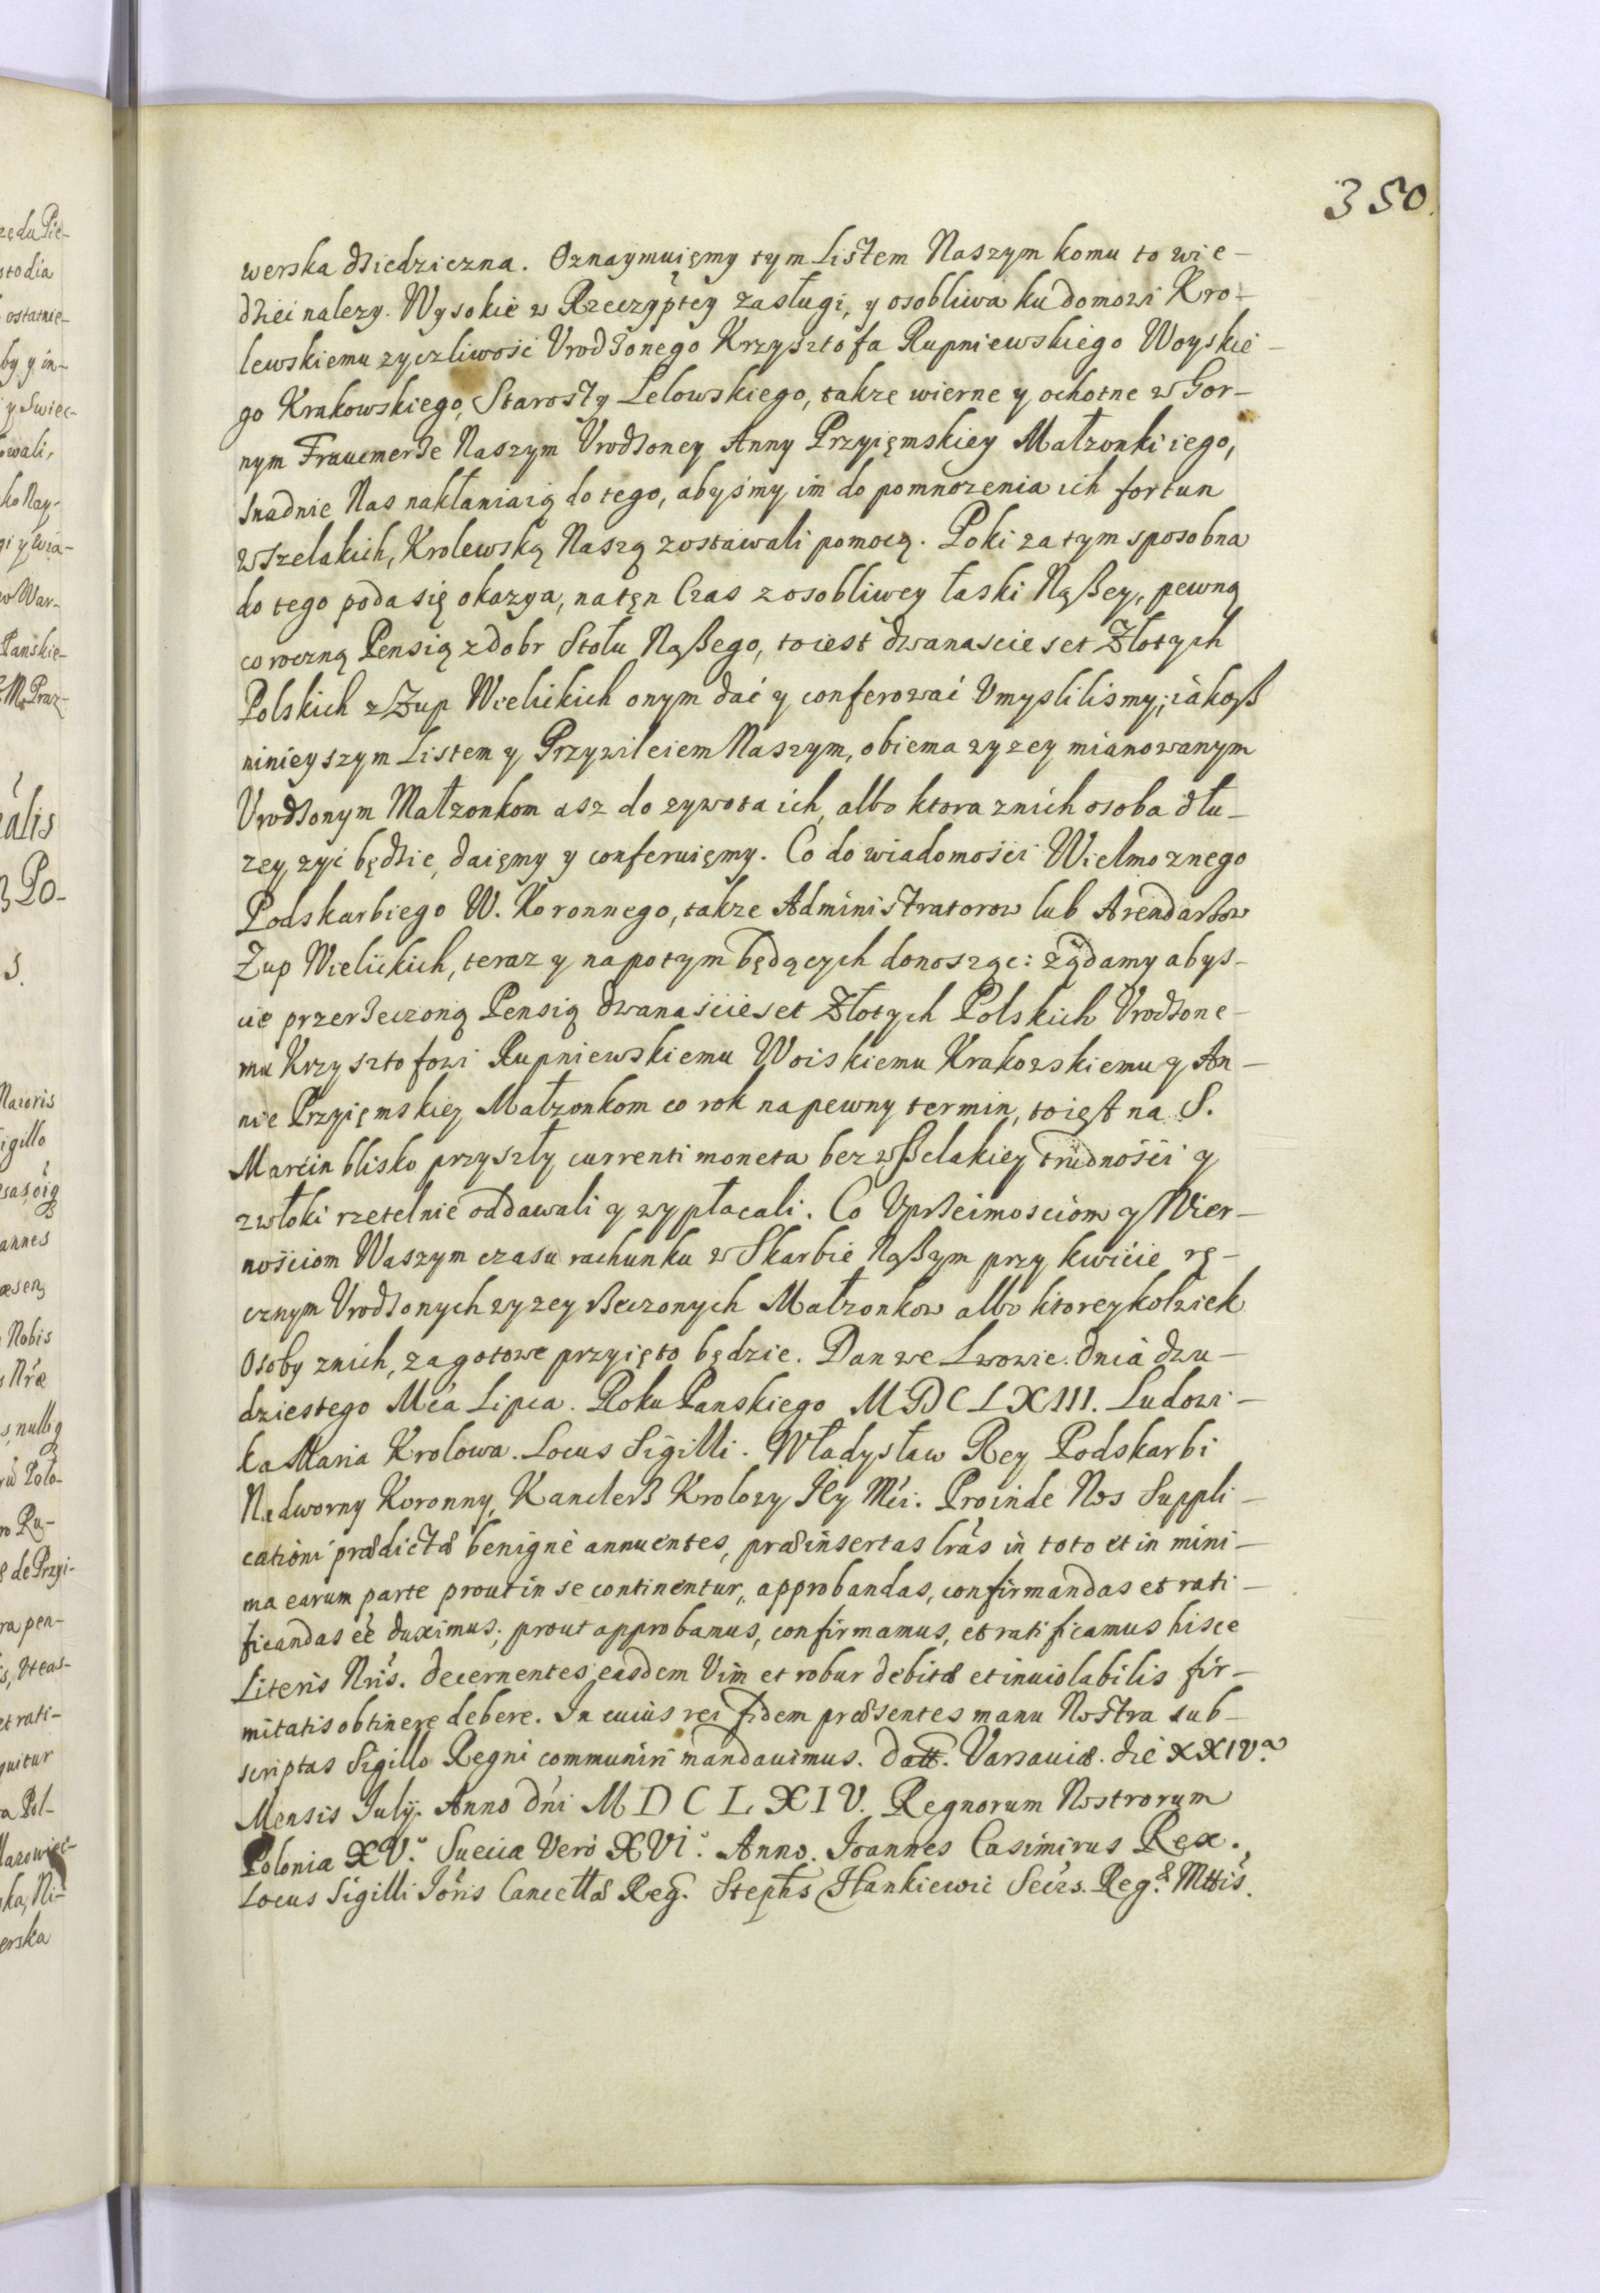 350.
werska dziedziczna. Oznaymuięmy tym Listem Naszym komu to wie-
dzieć nalezy. Wysokie w Rzeczyptey zasługi, y osobliwa ku domowi Kro-
lewskiemu zyczliwość Vrodzonego Krzysztofa Rupniewskiego Woyskie-
go Krakowskiego, Starosty Lelowskiego, takze wierne y ochotne w Gor-
nym Fraucmerze Naszym Vrodzoney Anny Przyięmskiey Małzonki iego,
snadnie Nas nakłaniaią do tego, abyśmy im do pomnozenia ich fortun
wszelakich, Krolewską Naszą zostawali pomocą. Poki zatym sposobna
do tego poda się okazya, natęn Czas z osobliwey łaski Naßey, pewną
coroczną Pensią z dobr Stołu Naßego, toiest dwanascie set Złotych
Polskich z Zup Wielickich onym dać y conferować Vmyslilismy; iakoß
ninieyszym Listem y Przywileiem Naszym, obiema wyzey mianowanym
Vrodzonym Małzonkom asz do zywota ich, albo ktora znich osoba dłu-
zey zyć będzie, daięmy y conferuięmy. Co do wiadomości Wielmoznego
Podskarbiego W. Koronnego, takze Administratorow lub Arendarzow
Zup Wielickich, teraz y napotym będących donosząc: żądamy abys-
cie przerzeczoną Pensią dwanaścieset Złotych Polskich Vrodzone-
mu Krzysztofowi Rupniewskiemu Woiskiemu Krakowskiemu y An-
nie Przyięmskiey Małzonkom co rok na pewny termin, toięst na S.
Marcin blisko przyszły currenti moneta bez wßelakiey trudności y
zwłoki rzetelnie oddawali y wypłacali. Co Vprzeimosciom y Wier-
nościom Waszym czasu rachunku w Skarbie Naßym przy kwicie rę-
cznym Vrodzonych wyzey rzeczonych Małzonkow albo ktoreykolwiek
Osoby znich, zagotowe przyięto będzie. Dan we Lwowie. dnia dwu-
dziestego Mca Lipca. Roku Panskiego MDCLXIII. Ludowi-
ka Maria Krolowa. Locus Sigilli. Władysław Rey Podskarbi
Nadworny Koronny, Kanclerz Krolowy Jey Mci. Proinde Nos Suppli-
cationi prædictæ benignè annuentes, præinsertas lras in toto et in mini-
ma earum parte prout in se continentur, approbandas, confirmandas et rati-
ficandas eē duximus, prout approbamus, confirmamus, et ratificamus hisce
Literis Nris. decernentes easdem Vim et robur debitæ et inuiolabilis fir-
mitatis obtinere debere. In cuius rei fidem præsentes manu Nostra sub-
scriptas Sigillo Regni communiri mandauimus. Datt. Varsauiæ. die XXIVa.
Mensis Julÿ. Anno dni MDCLXIV. Regnorum Nostrorum
Polonia XV.° Sueciæ Verò XVI.° Anno. Joannes Casimirus Rex.
Locus Sigilli Joris Cancellæ Reg. Stephs Hankiewic Secrs. Reg.æ Mttis.